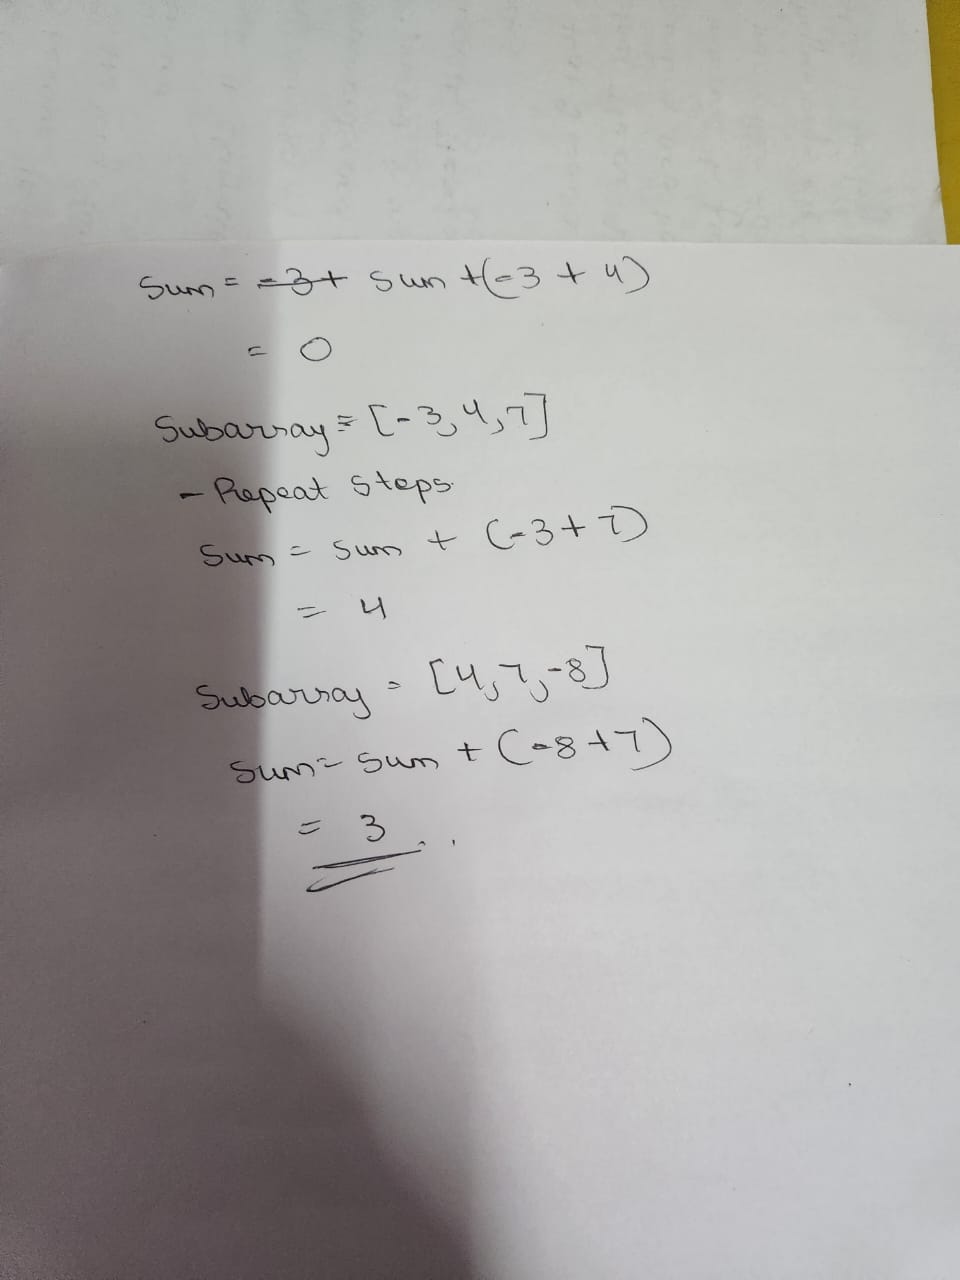 Sum = -3+ sum +(-3 + 4)
= 0
Subarray = [-3, 4, 7]
- Repeat steps.
Sum = sum + (-3+7)
= 4
Subarray = [4, 7, -8]
Sum = sum + (-8+7)
= 3